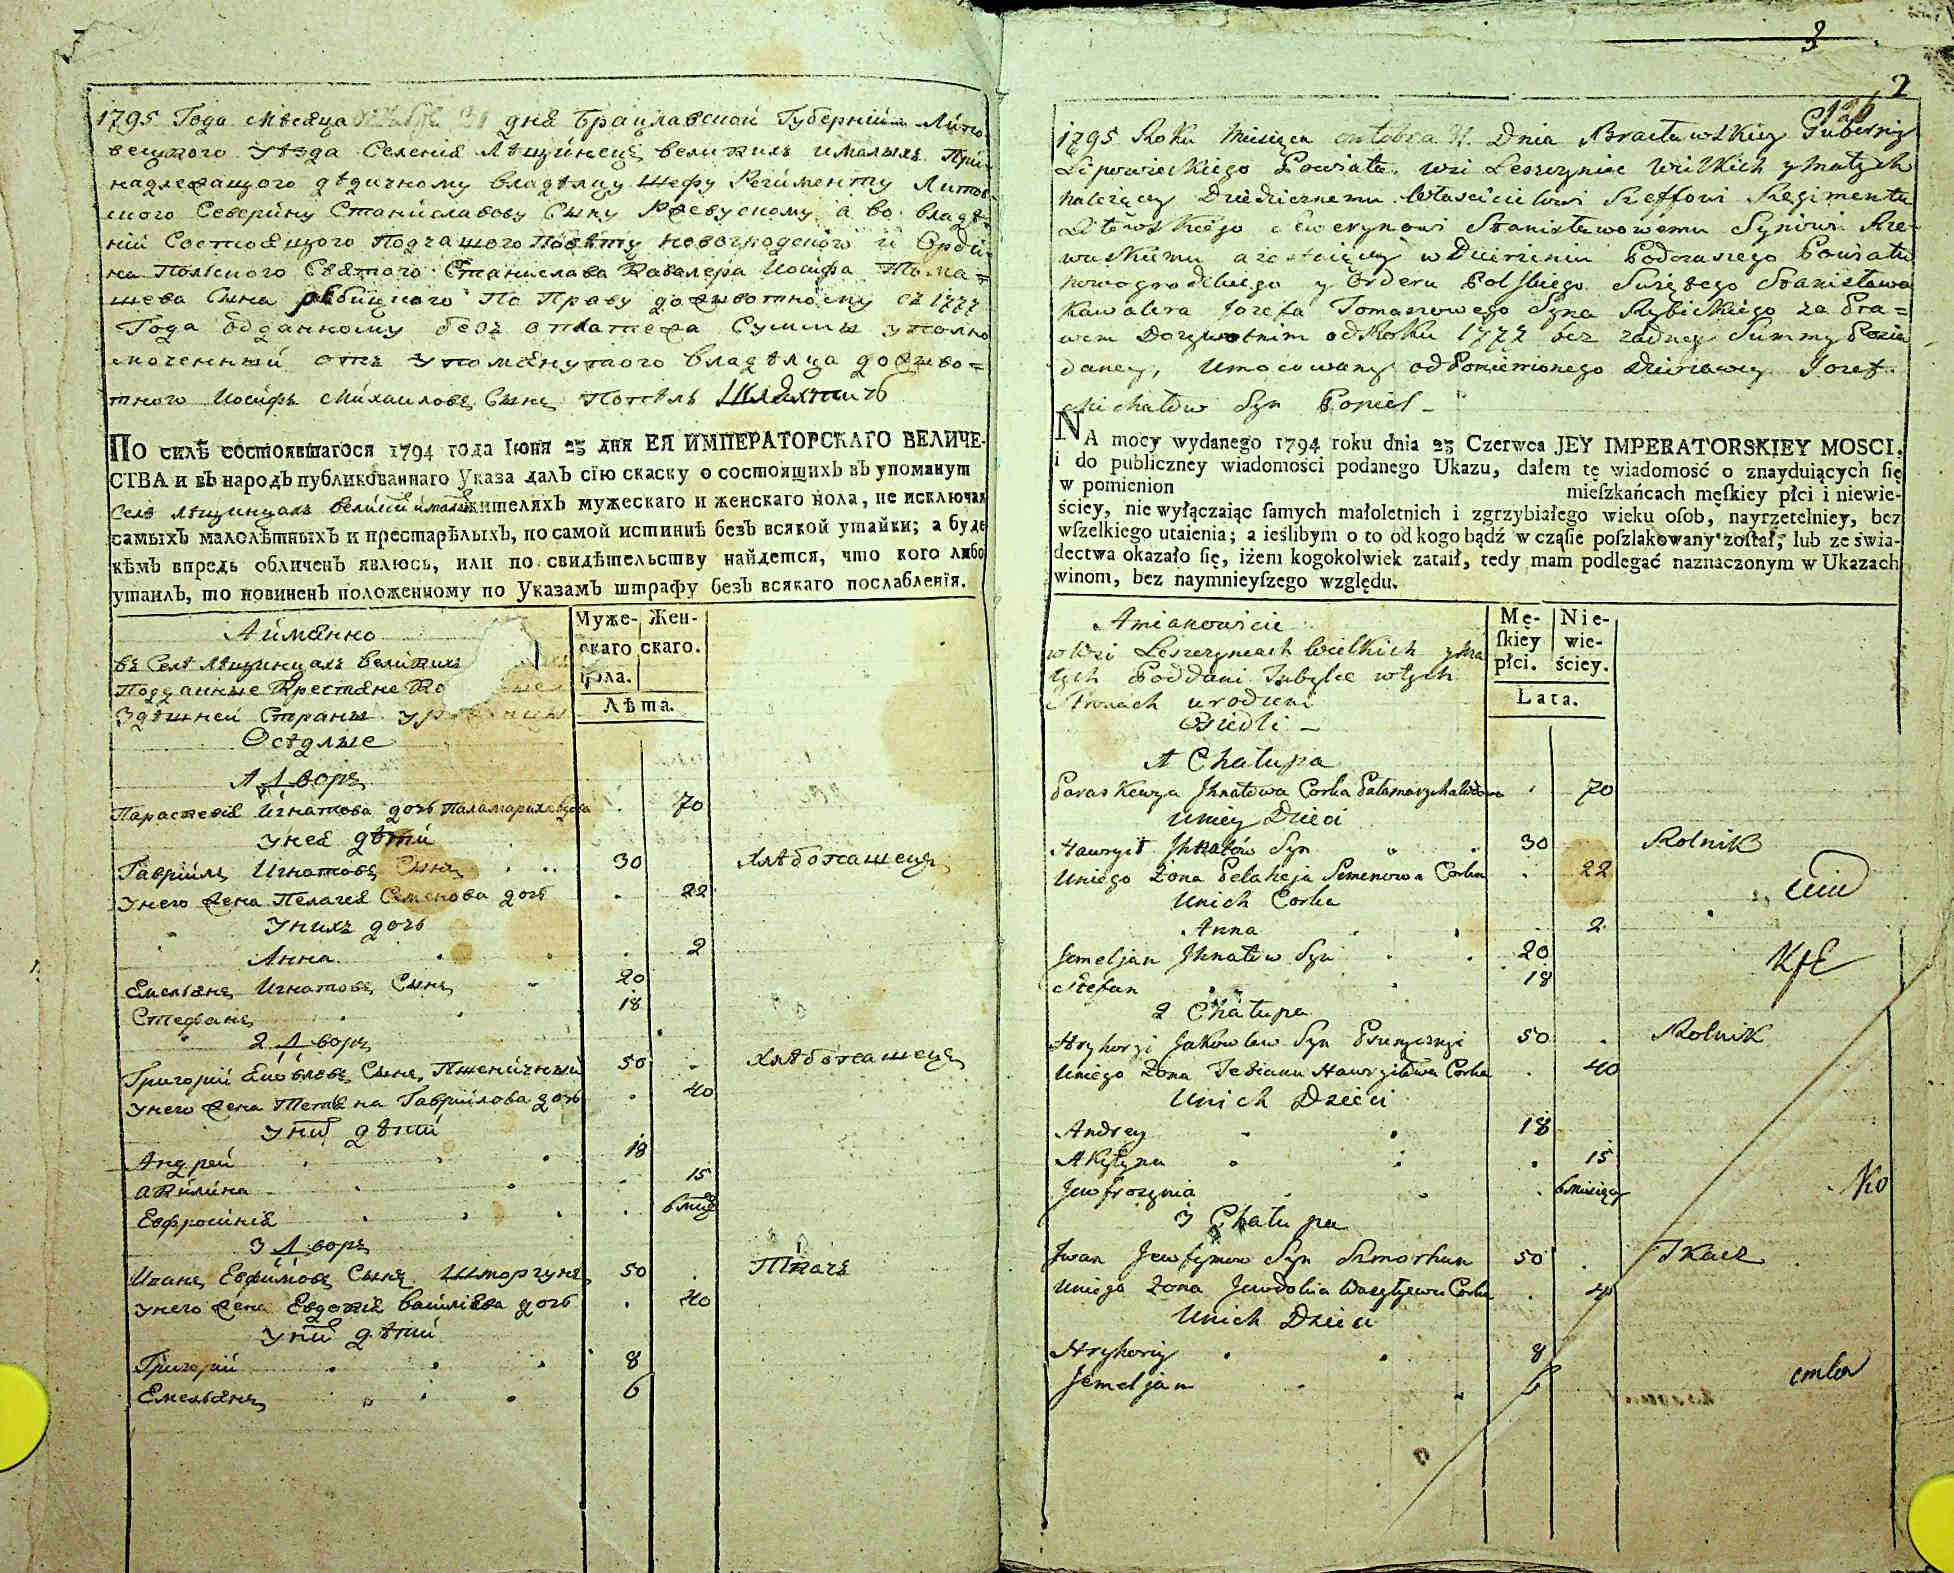 1795 Года Месяца дня Брацлавской Губернїи Липо
вецкого уезда Селенія Лещинецъ великихъ и малыхъ При
надлежащого дедичному владелцу Шефу Регименту Литов
ского Северину Станиславову Сыну Ржевускому а во владе
нїи Состоящого Подчашого Повету новогродского и Орде
на Полского Святого Станислава Кавалера Иосифа Тома=
шева Сына Рыбицкого По Праву доживотному съ 1777
Года отданному безъ Суммы уполно
моченный отъ упомянутого владелца доживо=
тного Иосифъ Михаиловъ Сынъ Попель Шляхтичъ
ПО силѣ состоявшагося 1794 года Іюня 23 дня ЕЯ ИМПЕРАТОРСКАГО ВЕЛИЧЕ-
СТВА и въ народъ публикованнаго Указа далъ сїю скаску о состоящихъ въ упомянут
Селе Лещинцахъ великихъ и малыхъ жителяхъ мужескаго и женскаго пола, не исключая
самыхъ малолѣтныхъ и престарѣлыхъ, по самой истиннѣ безъ всякой утайки; а буде
кѣмъ впредь обличенъ явлюсь, или по свидѣтельству найдется, что кого либо
утаилъ, то повиненъ положенному по Указамъ штрафу безъ всякаго послабленїя.
Муже- Жен-
скаго скаго.
пола.
Лѣта.
А имянно
въ Селе Лещинцахъ великихъ
Подданные Крестяне
Здешней Страны
Оседлые
1 Дворъ
Параскевія Игнатова дочь 70
у нея дети
Гаврїилъ Игнатовъ Сынъ 30 Хлебопашецъ
у него жена Пелагея Семенова дочь 22
у нихъ дочь
Анна 2
Емельянъ Игнатовъ Сынъ 20
Стефанъ 18
2 Дворъ
Григорїй Яковлевъ Сынъ Пшеничный 50 Хлебопашецъ
у него жена Тетяна Гаврїилова дочь 40
у нихъ дети
Андрей 18
Акилина 15
Евфросинія 6 мцъ
3 Дворъ
Иванъ Евфимовъ Сынъ Шморгунъ 50 Ткачъ
у него жена Евдокія Василіева дочь 40
у нихъ дети
Григорїй 8
Емельянъ 6
3
2
1795 Roku Miesiąca oktobra 31 Dnia Bracławskiey Guberniy
Lipowieckiego Powiatu wsi Leszczyniec Wielkich y Małych
należący Dziedzicznemu Właścicielowi Szeffowi Regimentu
Litewskiego Sewerynowi Stanisławowemu Synowi Rze-
wuskiemu a w Dzierżeniu Podczaszego Powiatu
nowogrodzkiego y Orderu Polskiego Swiętego Stanisława
Kawalera Jozefa Tomaszowego Syna Rybickiego za Pra=
wem Dożywotnim od Roku 1777 bez żadney Summy
daney, Umocowany od Pomienionego Dzierżawcy Jozef
Michałow Syn Popiel
NA mocy wydanego 1794 roku dnia 23 Czerwca JEY IMPERATORSKIEY MOSCI,
i do publiczney wiadomości podanego Ukazu, dałem tę wiadomość o znayduiących się
w pomienion mieſzkańcach męſkiey płci i niewie-
ściey, nie wyłączaiąc ſamych małoletnich i zgrzybiałego wieku oſob, nayrzetelniey, bez
wſzelkiego utaienia; a ieślibym o to od kogo bądź w cząſie poſzlakowany zoſtał, lub ze świa-
dectwa okazało ſię, iżem kogokolwiek zataił, tedy mam podlegać naznaczonym w Ukazach
winom, bez naymnieyſzego względu.
Mę- Nie-
ſkiey wie-
płci. ściey.
Lata.
A mianowicie
w Wsi Leszczyncach Wielkich y Ma
łych Poddani w tych
Stronach urodzeni
Osiedli
1 Chałupa
Paraskewya Jhnatowa Corka 70
U niey Dzieci
Hawryił Jhnatów Syn 30 Rolnik
U niego Żona Pelaheja Semenowa Corka 22
U nich Corka
Anna 2
Jemeljan Jhnatów Syn 20
Stefan 18
2 Chałupa
Hryhoryi Jakowlew Syn Pszenycznyi 50 Rolnik
U niego Żona Tetianna Hawryiłowa Corka 40
U nich Dzieci
Andrey 18
Akylyna 15
Jewfrozynia 6 miesięcy
3 Chałupa
Jwan Jewfymow Syn Szmorhun 50 Tkacz
U niego Żona Jewdokia Wasylyewa Corka 40
U nich Dzieci
Hryhoriy 8
Jemeljan 6